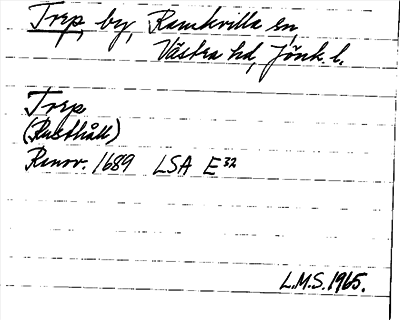 Trep, by, Ramkvilla sn,
Västra hd, Jönk. l.
Trep
(Rusthåll)
Ranov. 1689 LSA E32
L.M.S. 1965.